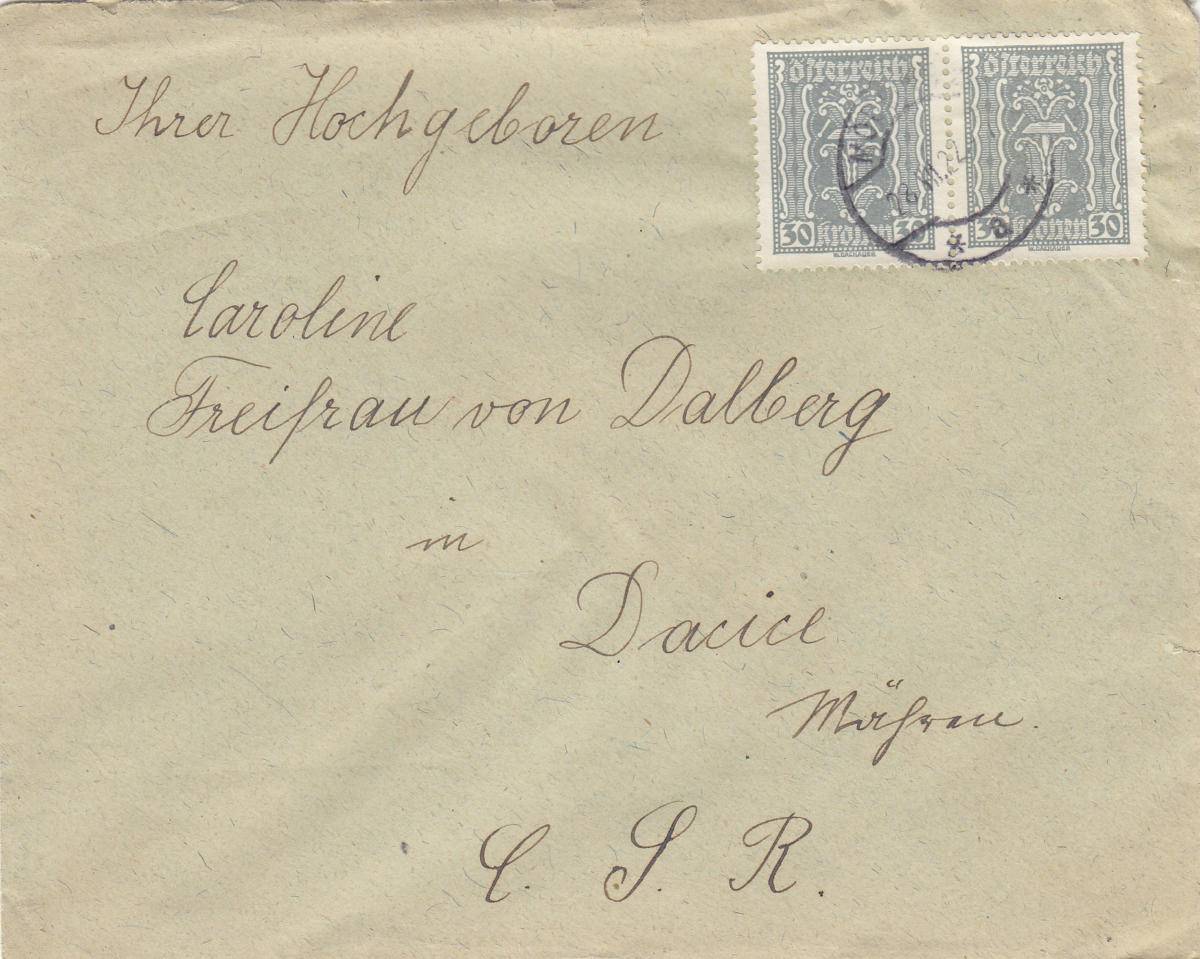 Ihrer Hochgeboren
Österreich Österreich
30 Kronen 30 30 Kronen 30
W. DACHAUER W. DACHAUER
a
Caroline
Freifrau von Dalberg
in
Dacice
Mähren.
C. S. R.